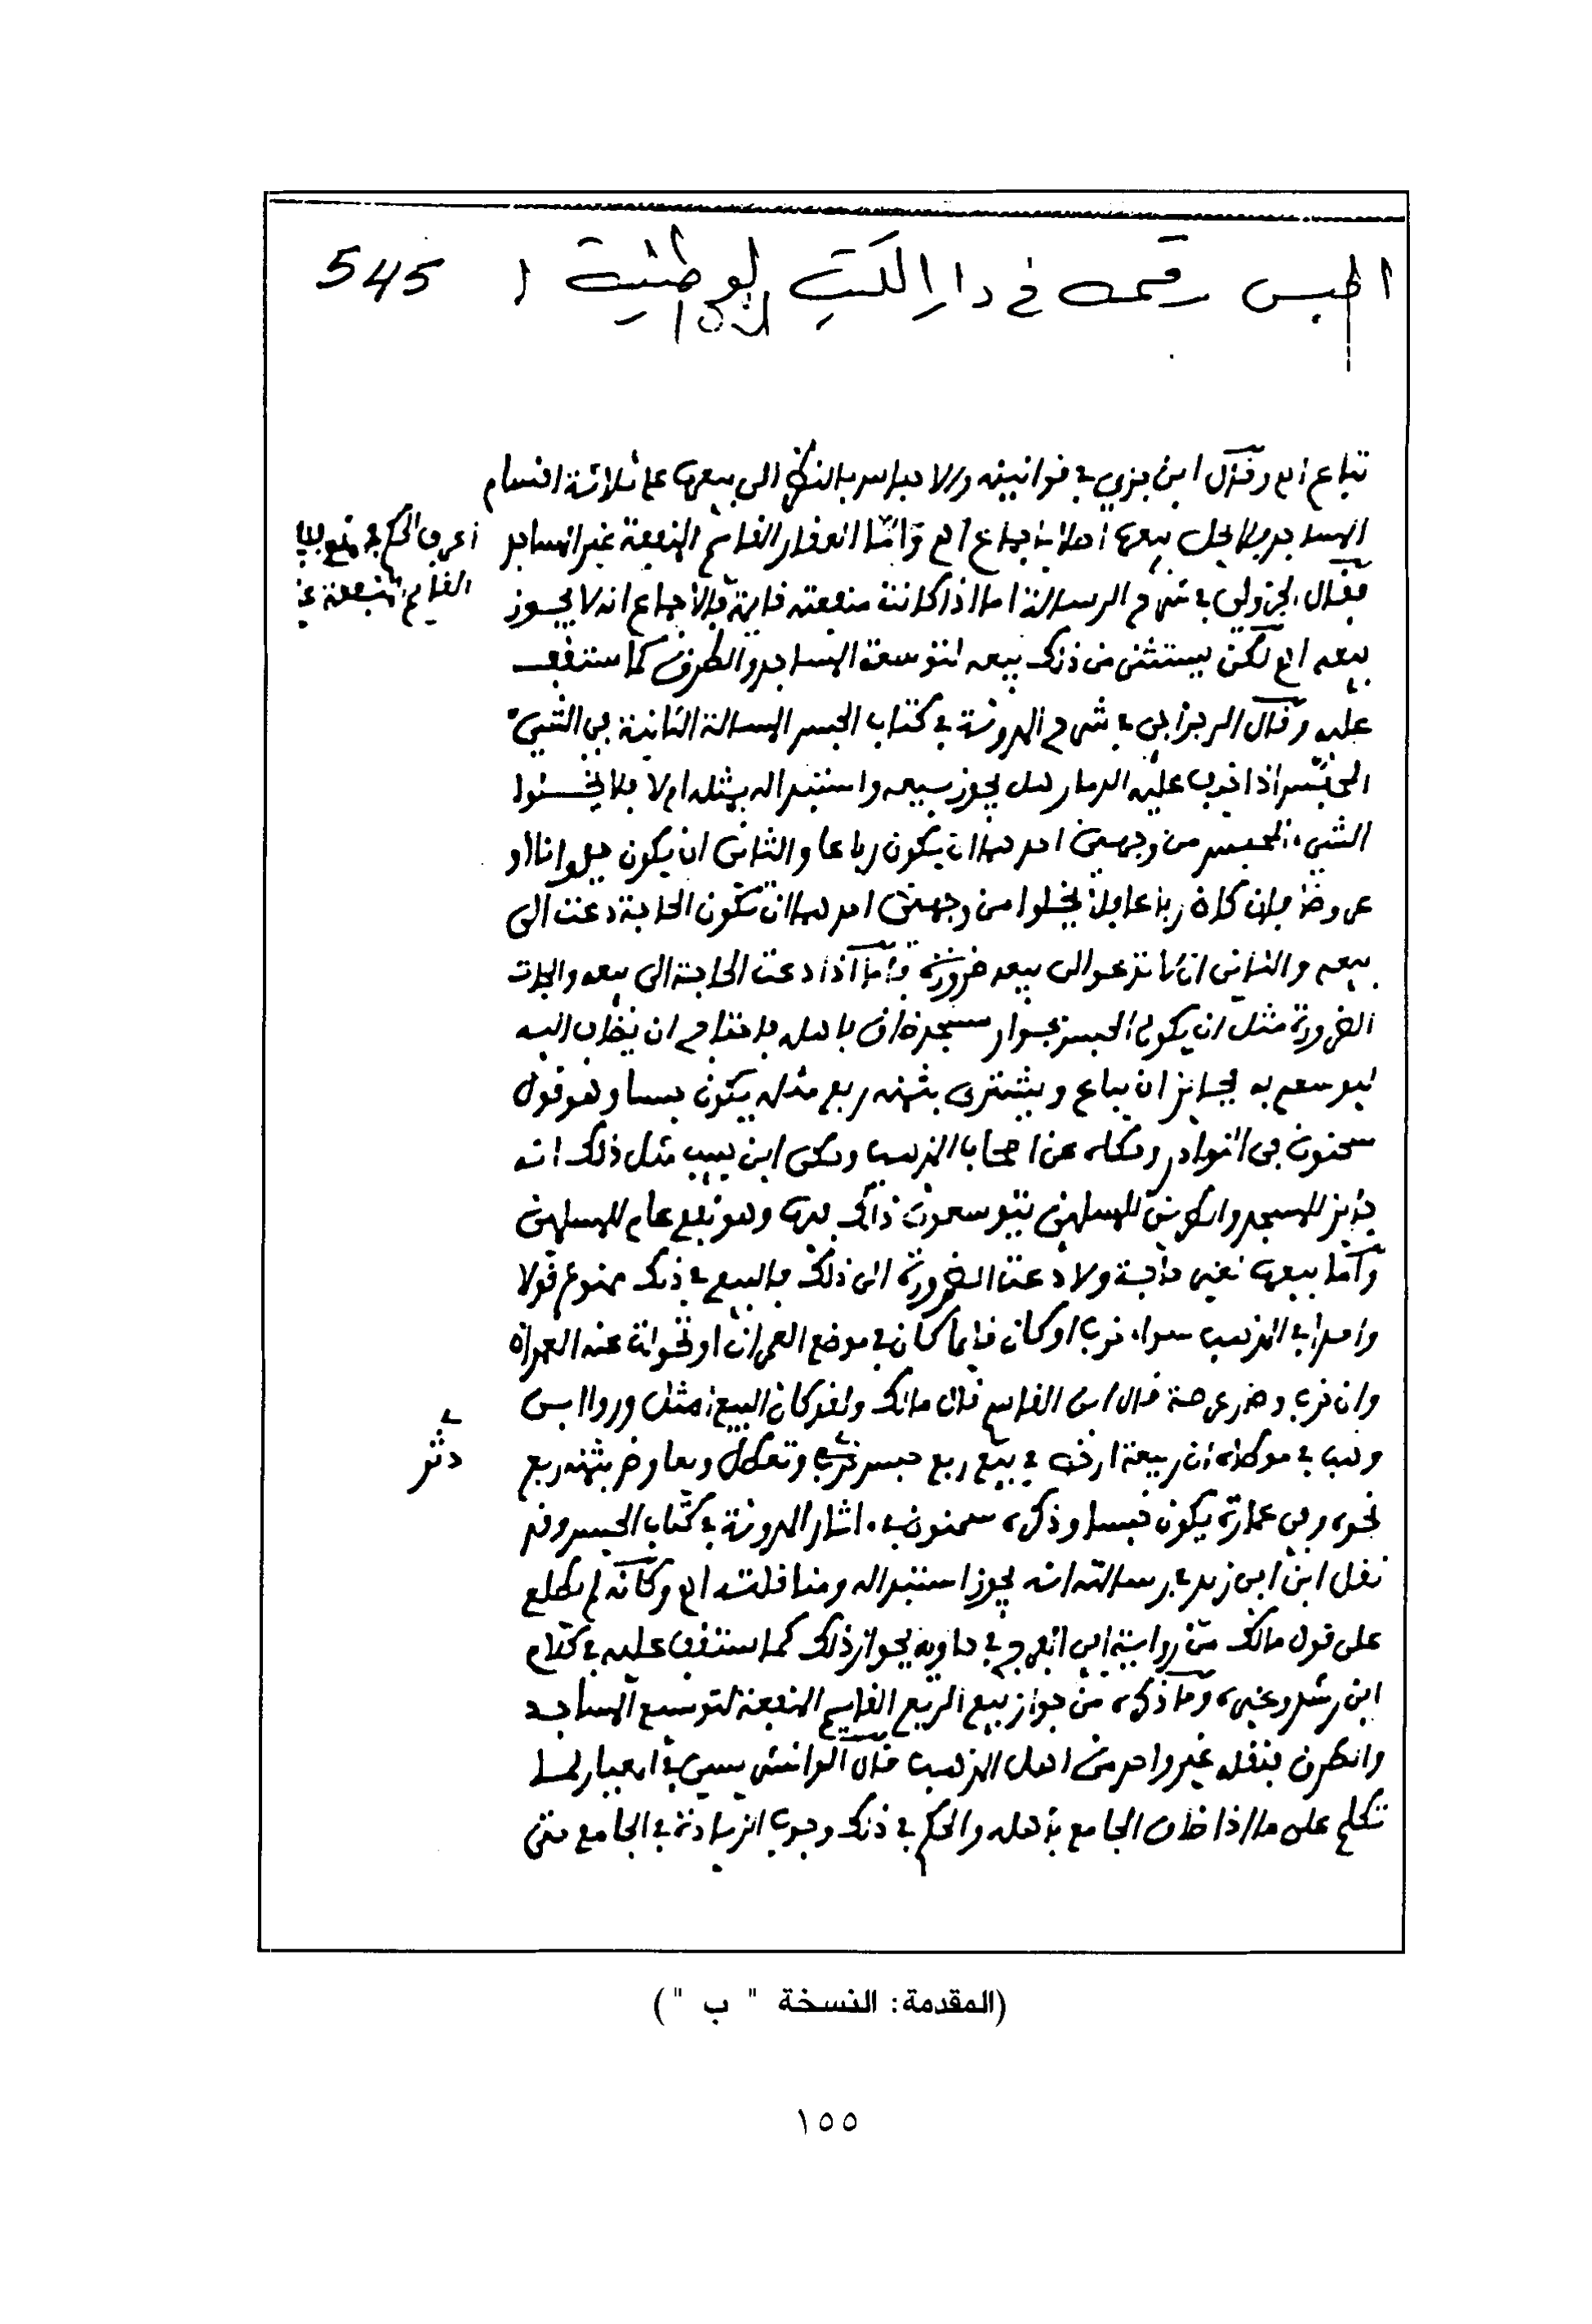 الحبس رقمه في دار الكتب الوطنية 545
تباع اهـ وقال ابن جزي في قوانينه والاحباس بالنظر الى بيعها على ثلاثة اقسام
المساجد فلا يحل بيعها اصلا باجماع اهـ واما العقار القائم المنفعة غير المساجد
اعرف الحكم في منع بيع
القائم المنفعة
فقال الجزولي في شرح الرسالة اما اذا كانت منفعته قايمة فالاجماع انه لا يجوز
بيعه اهـ لكن يستثنى من ذلك بيعه لتوسعة المساجد والطرق كما ستقف
عليه وقال الرجراجي في شرح المدونة في كتاب الحبس المسالة الثانية في الشيء
المحبس اذا خرب عليه الدمار هل يجوز بيعه واستبداله بمثله ام لا فلا يخلوا
الشيء المحبس من وجهين احدهما ان يكون رباعا والثاني ان يكون حيوانا او
عروضا فان كان رباعا فلا يخلوا من وجهين احدهما ان تكون الحاجة دعت الى
بيعه والثاني ان لا تدعوا الى بيعه ضرورة فاما اذا دعت الحاجة الى بيعه والجات
الضرورة مثل ان يكون الحبس بجوار مسجد ضاق باهله فاحتاج ان يضاف اليه
ليوسع به فجايز ان يباع ويشترى بثمنه ربع مثله يكون حبسا وهو قول
سحنون في النوادر وحكاه عن اصحاب المذهب وحكى ابن حبيب مثل ذلك انه
جايز للمسجد والطريق للمسلمين يتوسعون ذلك فيها وهو نفع عام للمسلمين
واما بيعها لغير حاجة ولا دعت الضرورة الى ذلك فالبيع في ذلك ممنوع قولا
واحدا في المذهب سواء خرب او كان قايما كان في موضع العمران او تحولت عنه العمارة
وان خرب وصار عرصة قال ابن القاسم قال مالك ولو كان البيع امثل وروى ابن
وهب في موطاه ان ربيعة ارخص في بيع ربع حبس خرب وتعطل ويعاوض بثمنه ربع
دثر
نحوه وفي عمارة يكون حبسا وذكره سحنون في اثار المدونة في كتاب الحبس وقد
نقل ابن ابي زيد في رسالته انه يجوز استبداله ومناقلته اهـ وكانه لم يطلع
على قول مالك من رواية ابي الفرج في حاويه بجواز ذلك كما ستقف عليه في كلام
ابن رشد وغيره وما ذكره من جواز بيع الربع القايم المنفعة لتوسيع المساجد
والطرق بنقله غير واحد من اهل المذهب قال الونشريسي في المعيار لما
تكلم على ما اذا ضاق الجامع باهله والحكم في ذلك وجوب الزيادة في الجامع متى
(المقدمة: النسخة " ب ")
١٥٥